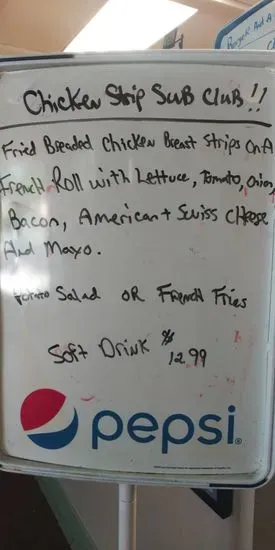 Chicken Strip Sub Club!!
Fried Breaded Chicken Breast Strips On A
French Roll with Lettuce, Tomato, Onion,
Bacon, American + Swiss Cheese
And Mayo.
Potato Salad OR French Fries
Soft Drink $12.99
pepsi